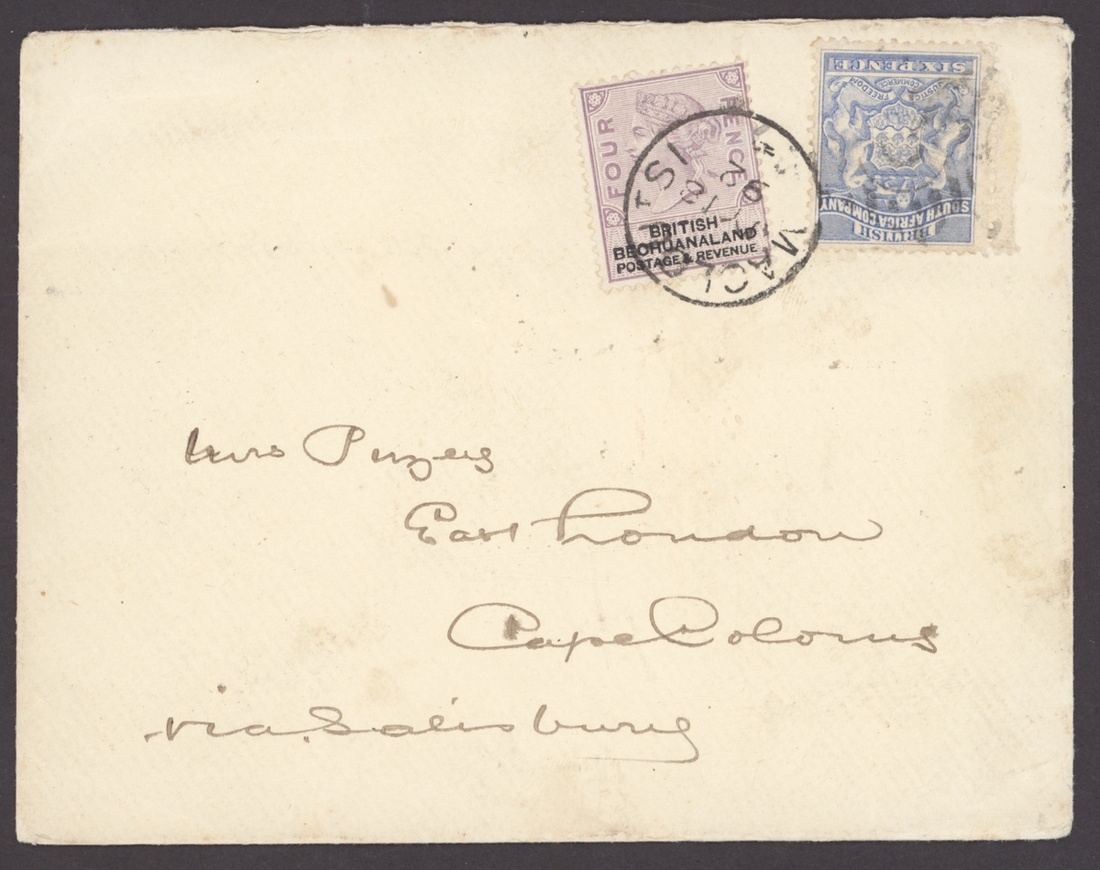 FOUR PENCE
BRITISH-
BECHUANALAND
POSTAGE & REVENUE
SIX PENCE
JUSTICE
COMMERCE
FREEDOM
BRITISH
SOUTH AFRICA COMPANY
MACLOUTSI
Mrs
East London
Cape Colony
via Salisbury